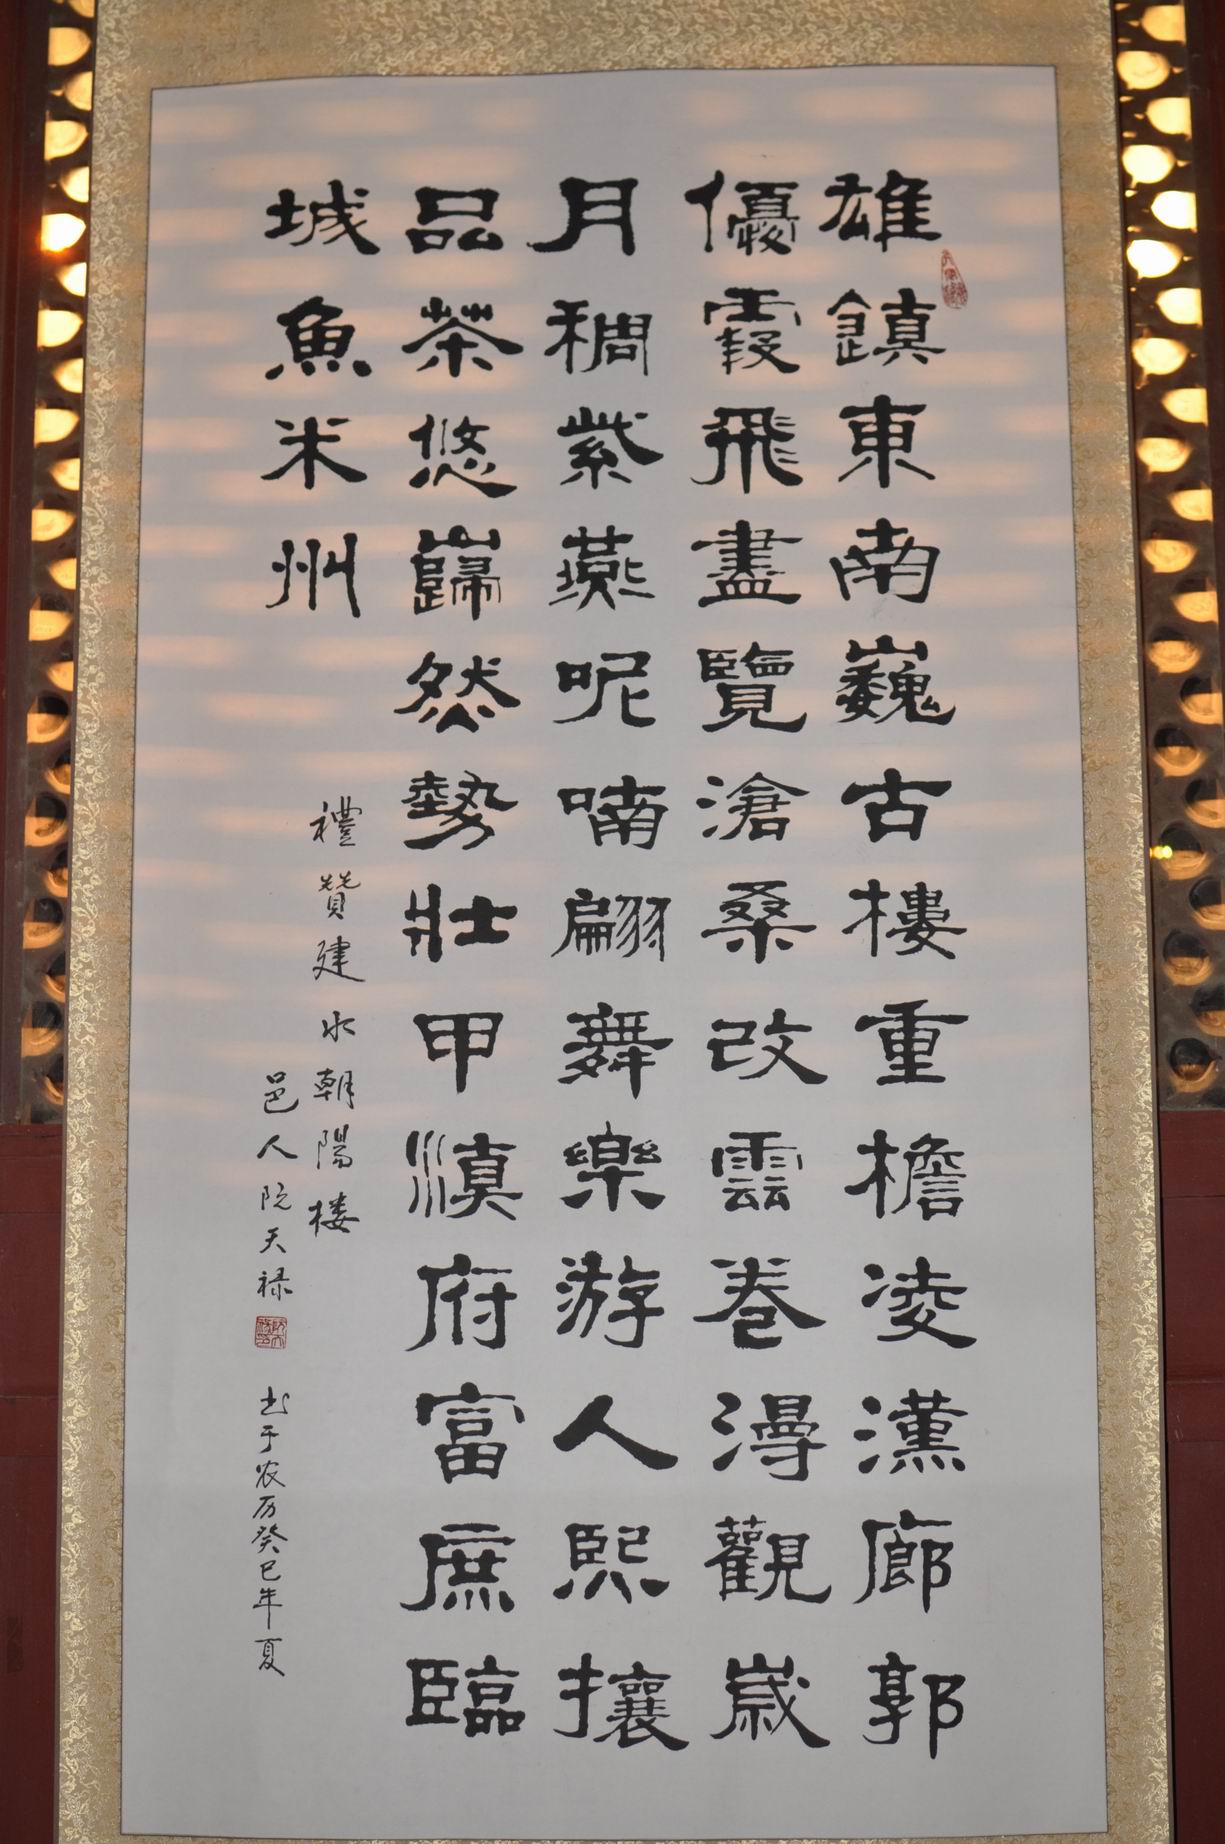 雄鎮東南巍古樓重檐凌漢廊郭
優霞飛盡覽滄桑改雲卷淂觀歲
月稠紫燕呢喃翩舞樂游人熙攘
品茶悠巋然勢壯甲滇府富庶臨
城魚米州
禮贊建水朝陽楼
邑人阮天禄
书于农历癸巳年夏